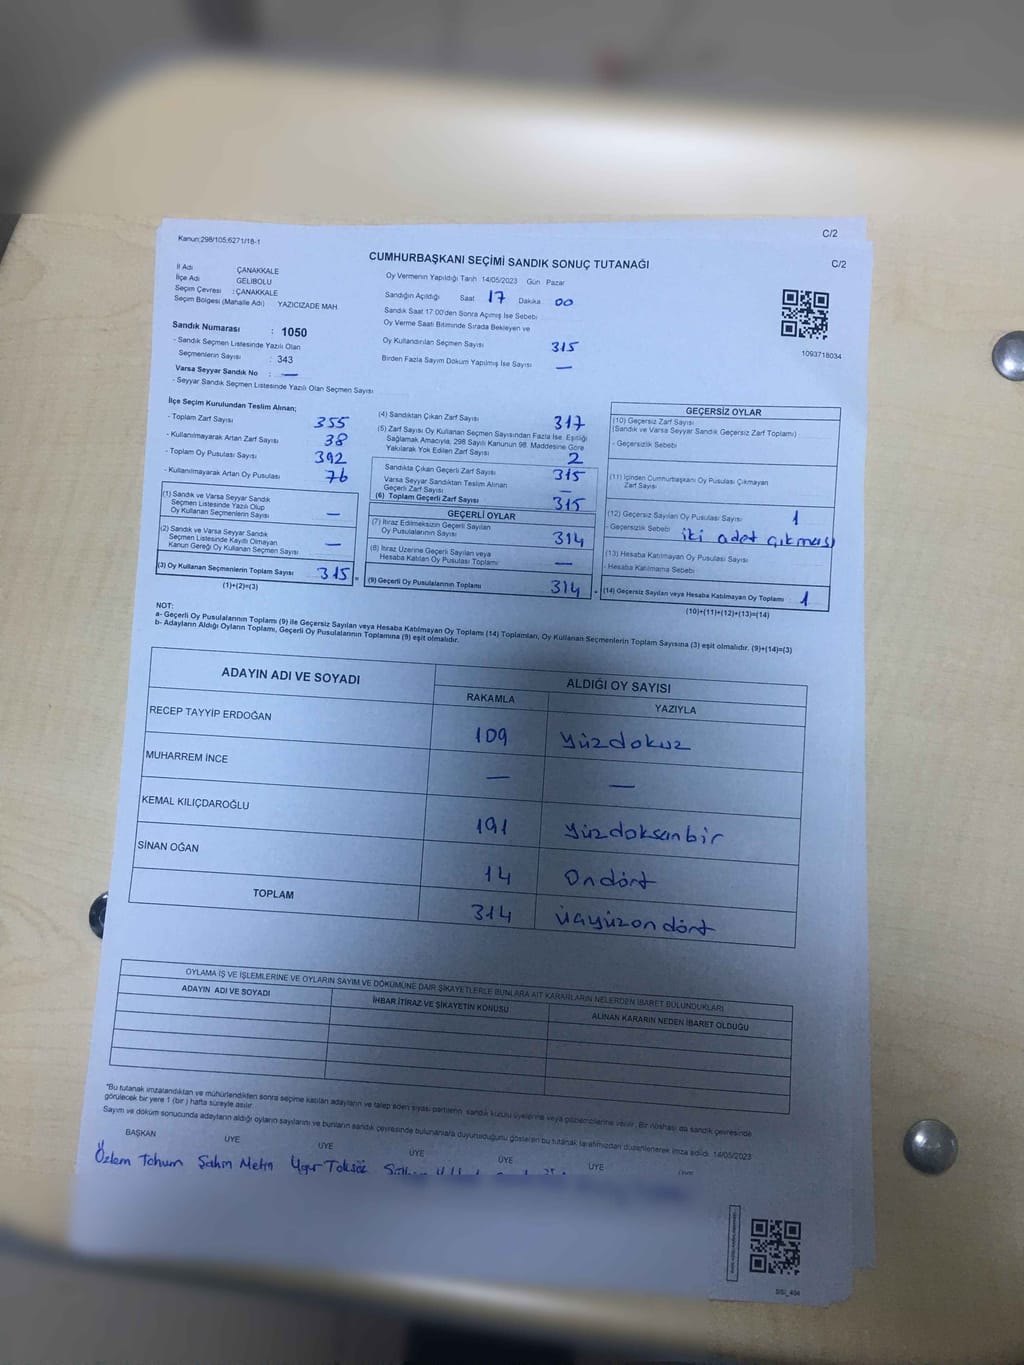 C/2
Kanun;298/105,6271/18-1
CUMHURBAŞKANI SEÇİMİ SANDIK SONUÇ TUTANAĞI
C/2
İl Adı ÇANAKKALE
İlçe Adı GELİBOLU
Seçim Çevresi : ÇANAKKALE
Seçim Bölgesi (Mahalle Adı) YAZICIZADE MAH.
Oy Vermenin Yapıldığı Tarih 14/05/2023 Gün Pazar
Sandığın Açıldığı Saat 17 Dakika 00
Sandık Saat 17:00'den Sonra Açımış İse Sebebi
Oy Verme Saati Bitiminde Sırada Bekleyen ve
Oy Kullandırılan Seçmen Sayısı 315
Birden Fazla Sayım Döküm Yapılmış İse Sayısı —
1093718034
Sandık Numarası : 1050
- Sandık Seçmen Listesinde Yazılı Olan
Seçmenlerin Sayısı : 343
Varsa Seyyar Sandık No : —
- Seyyar Sandık Seçmen Listesinde Yazılı Olan Seçmen Sayısı
İlçe Seçim Kurulundan Teslim Alınan;
- Toplam Zarf Sayısı 355
- Kullanılmayarak Artan Zarf Sayısı 38
- Toplam Oy Pusulası Sayısı 392
- Kullanılmayarak Artan Oy Pusulası 76
(1) Sandık ve Varsa Seyyar Sandık
Seçmen Listesinde Yazılı Olup
Oy Kullanan Seçmenlerin Sayısı —
(2) Sandık ve Varsa Seyyar Sandık
Seçmen Listesinde Kayıtlı Olmayan
Kanun Gereği Oy Kullanan Seçmen Sayısı —
(3) Oy Kullanan Seçmenlerin Toplam Sayısı 315
(1)+(2)=(3)
(4) Sandıktan Çıkan Zarf Sayısı 317
(5) Zarf Sayısı Oy Kullanan Seçmen Sayısından Fazla İse, Eşitliği
Sağlamak Amacıyla, 298 Sayılı Kanunun 98. Maddesine Göre
Yakılarak Yok Edilen Zarf Sayısı 2
Sandıkta Çıkan Geçerli Zarf Sayısı 315
Varsa Seyyar Sandıktan Teslim Alınan
Geçerli Zarf Sayısı —
(6) Toplam Geçerli Zarf Sayısı 315
GEÇERLİ OYLAR
(7) İtiraz Edilmeksizin Geçerli Sayılan
Oy Pusulalarının Sayısı 314
(8) İtiraz Üzerine Geçerli Sayılan veya
Hesaba Katılan Oy Pusulası Toplamı —
(9) Geçerli Oy Pusulalarının Toplamı 314
GEÇERSİZ OYLAR
(10) Geçersiz Zarf Sayısı
(Sandık ve Varsa Seyyar Sandık Geçersiz Zarf Toplamı)
- Geçersizlik Sebebi
(11) İçinden Cumhurbaşkanı Oy Pusulası Çıkmayan
Zarf Sayısı
(12) Geçersiz Sayılan Oy Pusulası Sayısı 1
- Geçersizlik Sebebi iki adet çıkması
(13) Hesaba Katılmayan Oy Pusulası Sayısı
- Hesaba Katılmama Sebebi
(14) Geçersiz Sayılan veya Hesaba Katılmayan Oy Toplamı 1
(10)+(11)+(12)+(13)=(14)
NOT:
a- Geçerli Oy Pusulalarının Toplamı (9) ile Geçersiz Sayılan veya Hesaba Katılmayan Oy Toplamı (14) Toplamları, Oy Kullanan Seçmenlerin Toplam Sayısına (3) eşit olmalıdır. (9)+(14)=(3)
b- Adayların Aldığı Oyların Toplamı, Geçerli Oy Pusulalarının Toplamına (9) eşit olmalıdır.
ADAYIN ADI VE SOYADI ALDIĞI OY SAYISI
RAKAMLA YAZIYLA
RECEP TAYYİP ERDOĞAN 109 yüzdokuz
MUHARREM İNCE — —
KEMAL KILIÇDAROĞLU 191 yüzdoksanbir
SİNAN OĞAN 14 Ondört
TOPLAM 314 üçyüzondört
OYLAMA İŞ VE İŞLEMLERİNE VE OYLARIN SAYIM VE DÖKÜMÜNE DAİR ŞİKAYETLERLE BUNLARA AİT KARARLARIN NELERDEN İBARET BULUNDUKLARI
ADAYIN ADI VE SOYADI İHBAR İTİRAZ VE ŞİKAYETİN KONUSU ALINAN KARARIN NEDEN İBARET OLDUĞU
*Bu tutanak imzalandıktan ve mühürlendikten sonra seçime katılan adayların ve talep eden siyasi partilerin sandık kurulu üyelerine veya gözlemcilerine verilir. Bir nüshası da sandık çevresinde
görülecek bir yere 1 (bir ) hafta süreyle asılır.
Sayım ve döküm sonucunda adayların aldığı oyların sayılarını ve bunların sandık çevresinde bulunanlara duyurulduğunu gösteren bu tutanak tarafımızdan düzenlenerek imza edildi. 14/05/2023
BAŞKAN ÜYE ÜYE ÜYE ÜYE ÜYE
Özlem Tohum Şahin Metin Uğur Toksöz
SSİ_404